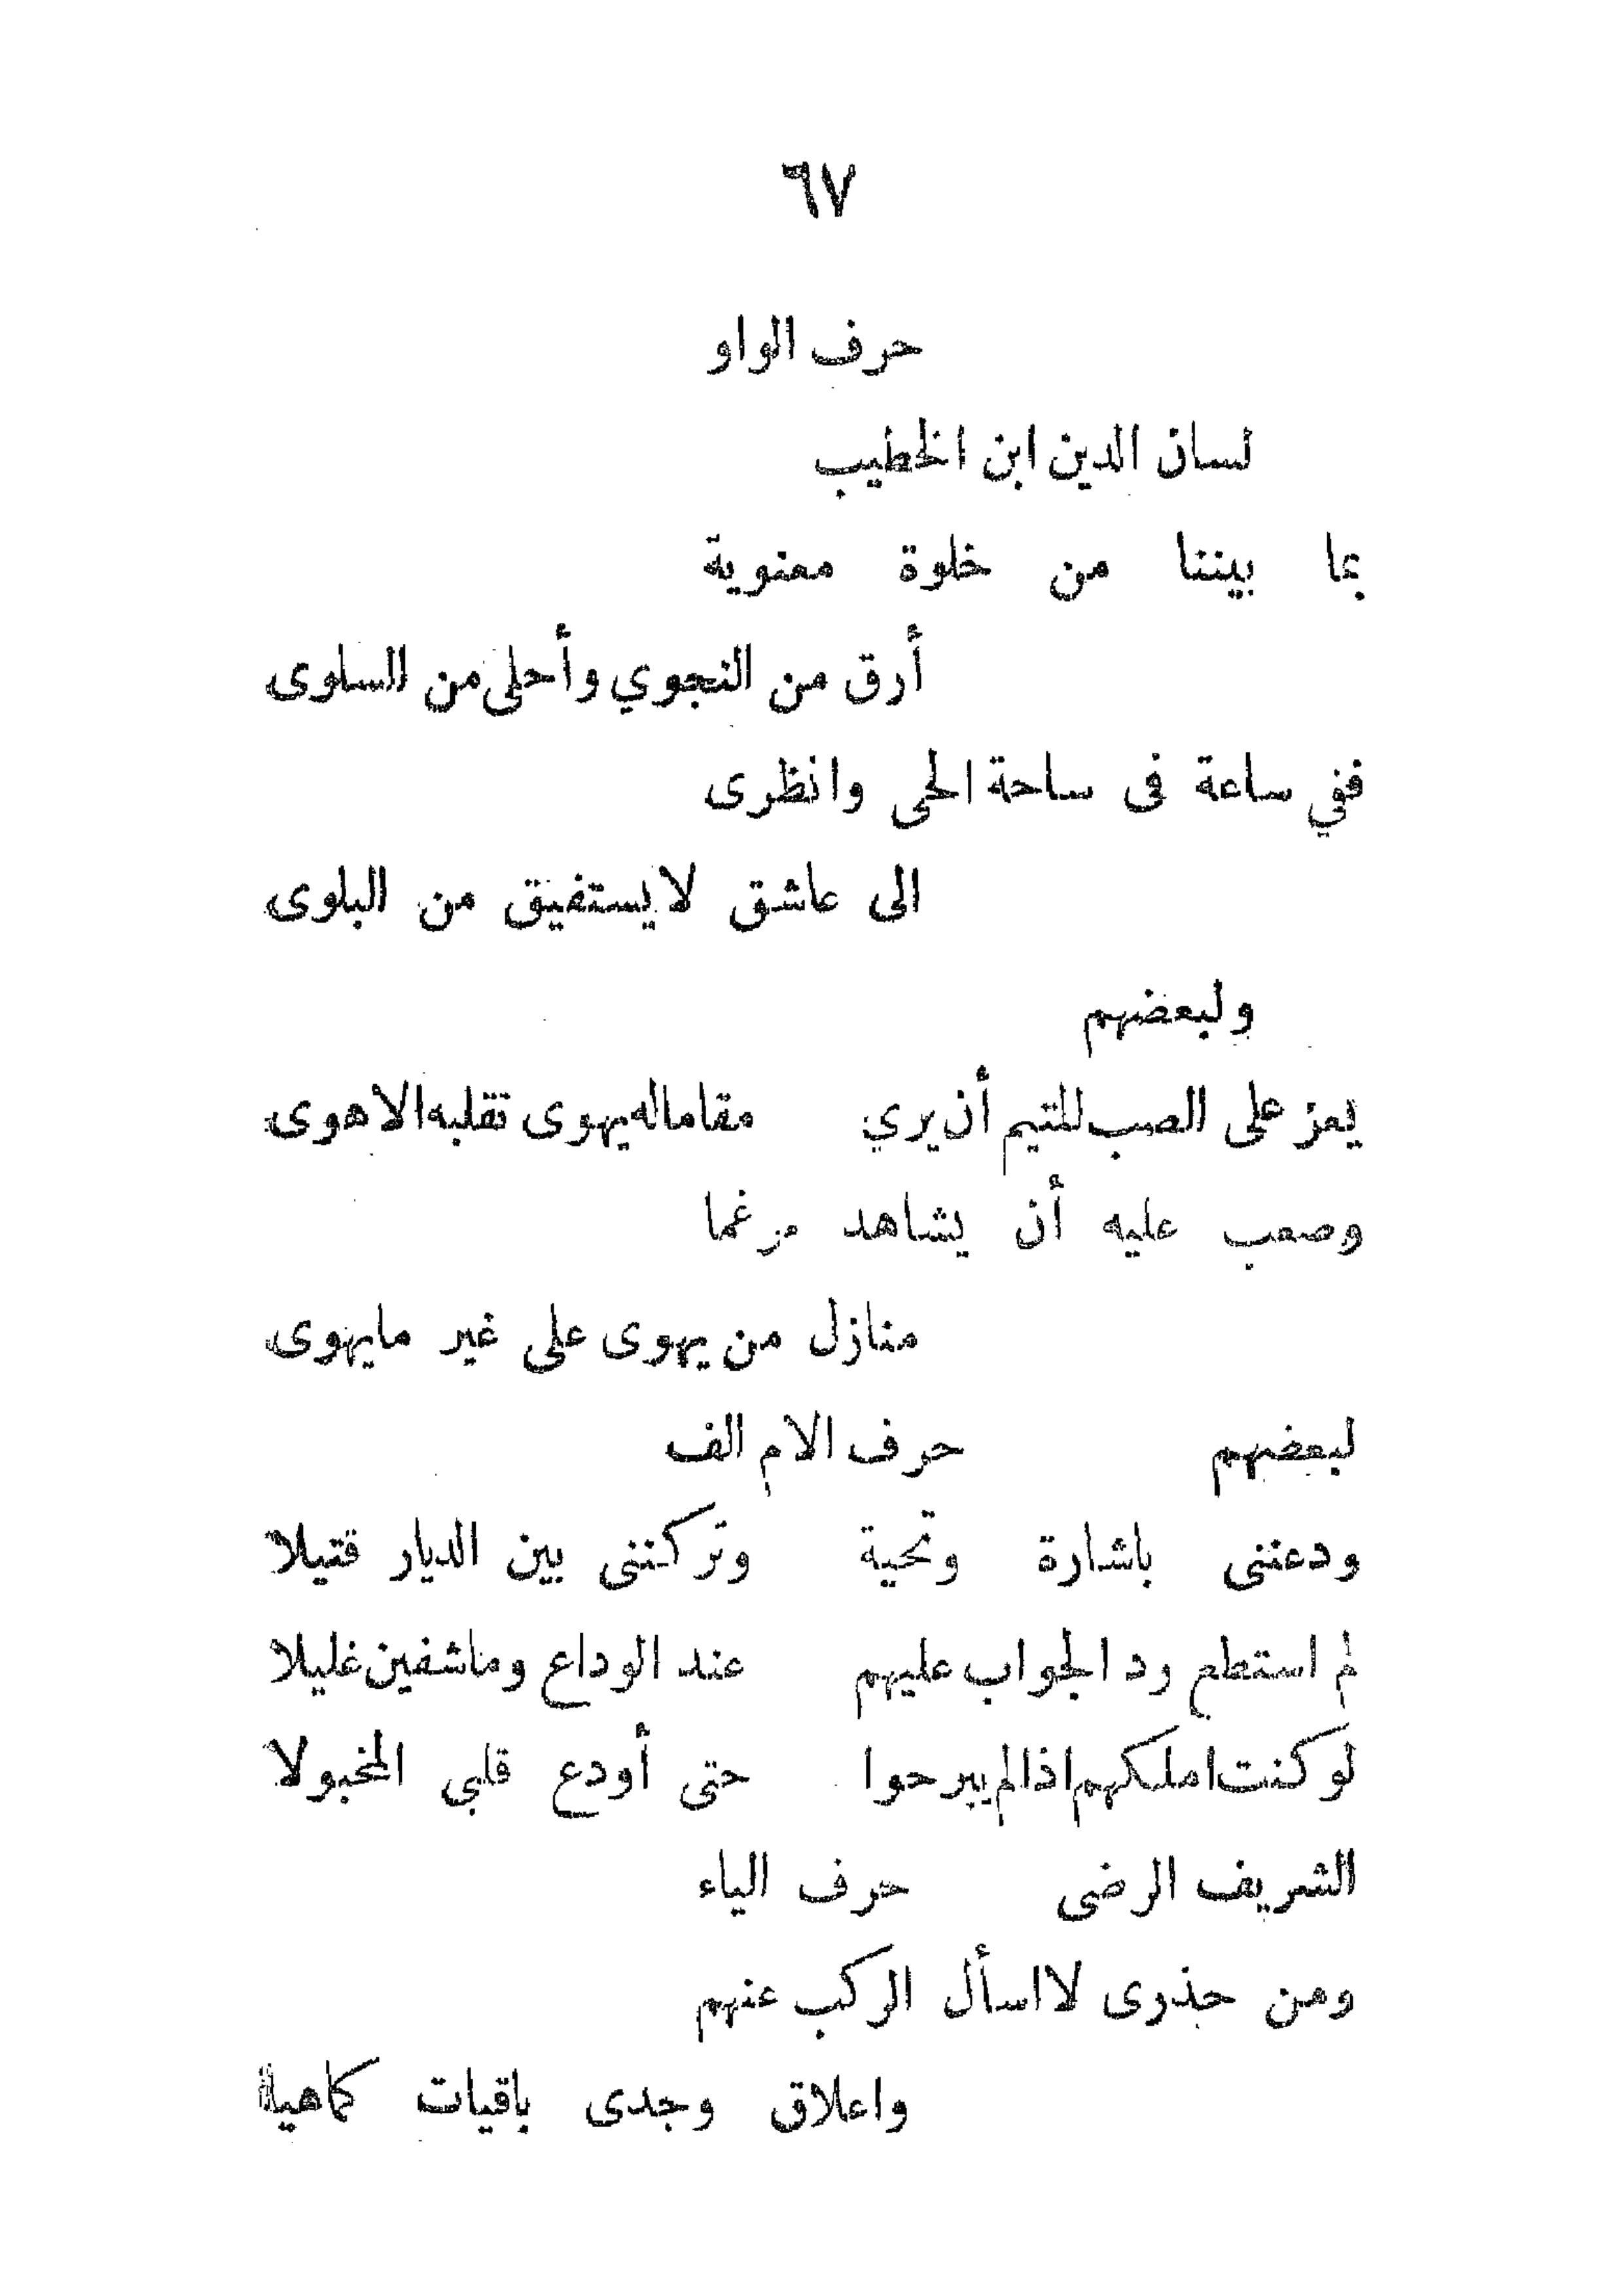 ٦٧
حرف الواو
لسان الدين ابن الخطيب
بما بيننا من خلوة معنوية
أرق من النجوي وأحلى من السلوى
ففي ساعة فى ساحة الحى وانظرى
الى عاشق لا يستفيق من البلوى
ولبعضهم
يعز على الصب للمتيم أن يري مقاما له يهوى تقلبه الاهوى
وصعب عليه أن يشاهد مرغما
منازل من يهوى على غير مايهوى
لبعضهم حرف الام الف
ودعننى باشارة وتحية وتركننى بين الديار قتيلا
لم استطع رد الجواب عليهم عند الوداع وماشفين غليلا
لو كنت املكهم اذا لم يبرحوا حتى أودع قلبى المخبولا
الشريف الرضى حرف الياء
ومن حذرى لا اسأل الركب عنهم
واعلاق وجدى باقيات كماهيا